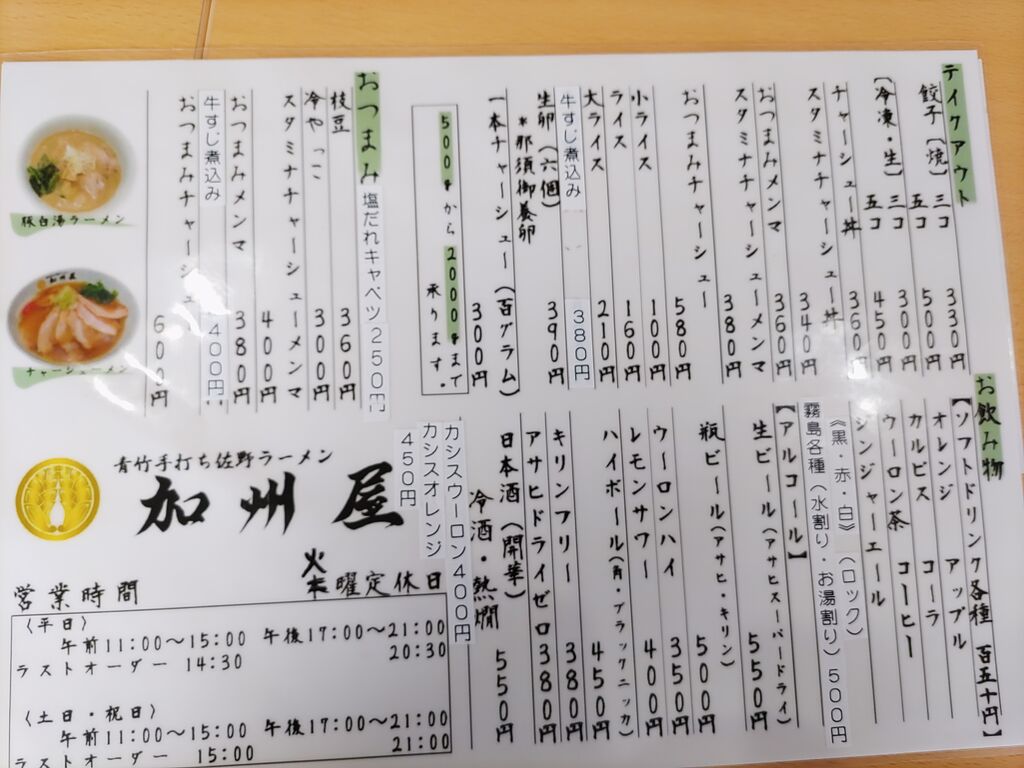 テイクアウト
餃子（焼）三コ 330円
五コ 500円
（冷凍・生）三コ 300円
五コ 450円
チャーシュー丼 360円
スタミナチャーシュー丼 340円
おつまみメンマ 360円
スタミナチャーシューメンマ 380円
おつまみチャーシュー 580円
小ライス 100円
ライス 160円
大ライス 210円
牛すじ煮込み 380円
生卵（六個） 390円
＊那須御養卵
一本チャーシュー（百グラム） 300円
500gから2000gまで
承ります。
おつまみ
塩だれキャベツ 250円
枝豆 360円
冷やっこ 300円
スタミナチャーシューメンマ 400円
おつまみメンマ 380円
牛すじ煮込み 400円
おつまみチャーシュー 600円
豚白湯ラーメン
チャーシューメン
お飲み物
【ソフトドリンク各種 百五十円】
オレンジ アップル
カルピス コーラ
ウーロン茶 コーヒー
ジンジャーエール
《黒・赤・白》（ロック）
霧島各種（水割り・お湯割り）500円
【アルコール】
生ビール（アサヒスーパードライ） 550円
瓶ビール（アサヒ・キリン） 500円
ウーロンハイ 350円
レモンサワー 400円
ハイボール（角・ブラックニッカ） 450円
キリンフリー 380円
アサヒドライゼロ 380円
日本酒（開華） 550円
冷酒・熱燗
カシスウーロン 400円
カシスオレンジ
450円
青竹手打ち佐野ラーメン
加州屋
火曜定休日
営業時間
〈平日〉
午前11:00～15:00 午後17:00～21:00
ラストオーダー 14:30 20:30
〈土日・祝日〉
午前11:00～15:00 午後17:00～21:00
ラストオーダー 15:00 21:00